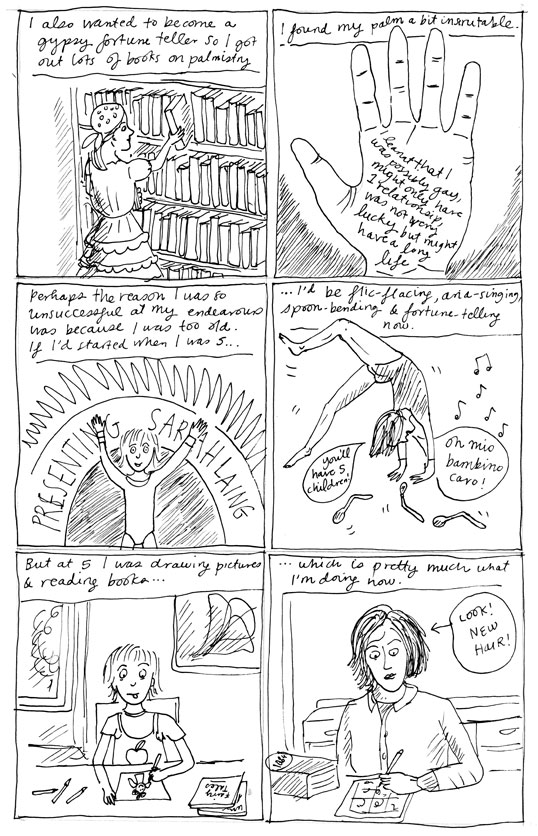 I also wanted to become a
gypsy fortune teller so I got
out lots of books on palmistry
I found my palm a bit inscrutable.
learnt that I
was possibly gay,
might only have
1 relationship,
was not very
lucky but might
have a long
life
Perhaps the reason I was so
unsuccessful at my endeavours
was because I was too old.
If I'd started when I was 5...
PRESENTING SARAH LAING
...I'd be flic-flacing, aria-singing,
spoon-bending & fortune-telling
now.
you'll
have 5
children!
oh mio
bambino
caro!
But at 5 I was drawing pictures
& reading books...
Fairy
Tales
... which is pretty much what
I'm doing now.
LOOK!
NEW
HAIR!